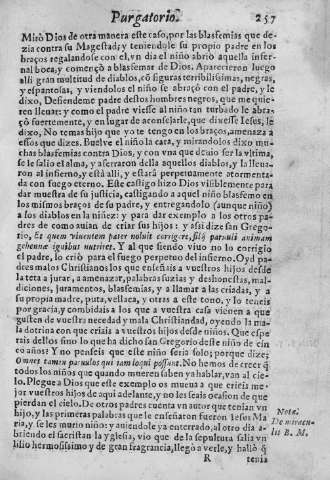 Purgatorio. 257
Mirò Dios de otra manera este caso, por las blasfemias que de-
zia contra su Magestad; y teniendole su propio padre en los
braços regalandose con el, vn dia el niño abriò aquella infer-
nal boca, y començò a blasfemar de Dios. Aparecieron luego
alli gran multitud de diablos, cõ figuras terribilissimas, negras,
y espantosas, y viendolos el niño se abraçò con el padre, y le
dixo, Defiendeme padre destos hombres negros, que me quie-
ren lleuar: y como el padre viesse al niño tan turbado le abra-
çò fuertemente, y en lugar de aconsejarle, que dixesse Iesus, le
dixo, No temas hijo que yo te tengo en los braços, amenaza a
essos que dizes. Buelue el niño la cara, y mirandolos dixo mu-
chas blasfemias contra Dios, y con vna que deuio ser la vltima,
se le salio el alma, y aferraron della aquellos diablos, y la lleua-
ron al infierno, y està alli, y estarà perpetuamente atormenta-
da con fuego eterno. Este castigo hizo Dios visiblemente para
dar muestra de su justicia, castigando a aquel niño blasfemo en
los mismos braços de su padre, y entregandolo (aunque niño)
a los diablos en la niñez: y para dar exemplo a los otros pa-
dres de como auian de criar sus hijos: y assi dize san Grego-
rio, Et quem viuentem pater noluit corrigere, sibi paruuli animam
gehennæ ignibus nutriret. Y al que siendo viuo no lo corrigio
el padre, lo criò para el fuego perpetuo del infierno. Oyd pa-
dres malos Christianos los que enseñais a vuestros hijos desde
la teta a jurar, a amenazar, palabras suzias y deshonestas, mal-
diciones, juramentos, blasfemias, y a llamar a las criadas, y a
su propia madre, puta, vellaca, y otras a este tono, y lo teneis
por gracia, y combidais a los que a vuestra casa vienen a que
gusten de vuestra necedad y mala Christiandad, oyendo la ma-
la dotrina con que criais a vuestros hijos desde niños. Que espe-
rais dellos sino lo que ha dicho san Gregorio deste niño de cin-
co años? Y no penseis que este niño seria solo; porque dize;
Omnes tamen paruulos qui iam loqui possunt. No hemos de creer q̃
todos los niños que quando mueren saben ya hablar, van al cie-
lo. Plegue a Dios que este exemplo os mueua a que crieis me-
jor vuestros hijos de aqui adelante, y no les seais ocasion de que
pierdan el cielo. De otros padres cuenta vn autor que tenian vn
hijo, y las primeras palabras que le enseñaron fueron Iesus Ma
ria, y se les murio niño: y auiendole ya enterrado, al otro dia a-
briendo el sacristan la yglesia, vio que de la sepultura salia vn
lilio hermosissimo y de gran fragrancia, llegò a verle, y hallò q̃
Nota.
De miracu-
lis B. M.
R tenia